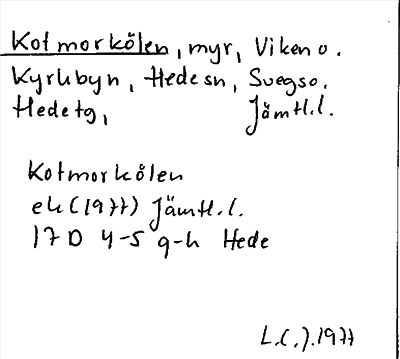 Kotmorkölen, myr, Viken o.
Kyrkbyn, Hede sn, Svegs o.
Hede tg, Jämtl.l.
Kotmorkölen
ek (1977) Jämtl.l.
17 D 4-5 g-h Hede
L.C.J. 1977